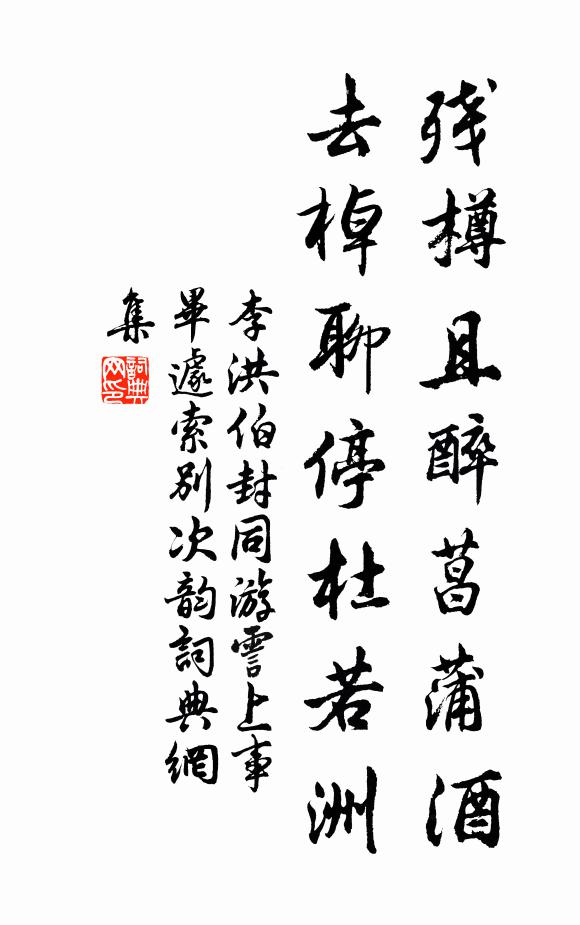 残樽且醉菖蒲酒
去棹聊停杜若洲
李洪伯封同游霅上事
畢遽索别次韵詞典網
集
詞典
网印